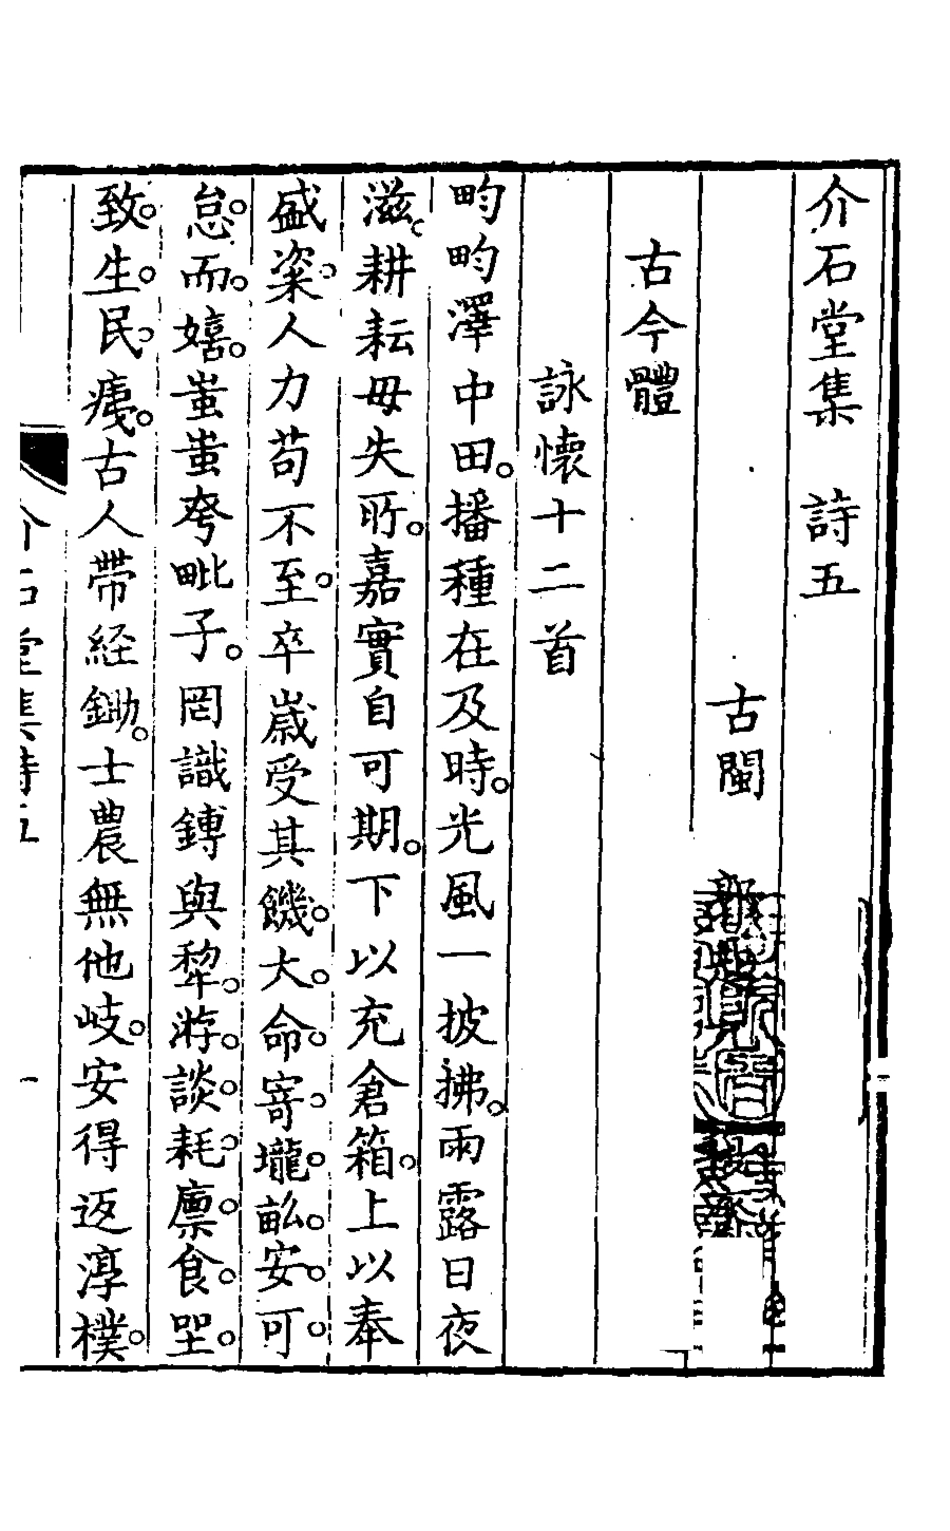 介石堂集 詩五
古閩
古今體
詠懷十二首
畇畇澤中田播種在及時光風一披拂雨露日夜
滋耕耘毋失所嘉實自可期下以充倉箱上以奉
盛粢人力苟不至卒歲受其饑大命寄壠畝安可
怠而嬉蚩蚩夸毗子罔識鎛與犂游談耗廪食坐
致生民痍古人帶経鋤士農無他岐安得返淳樸
介石堂集詩五 一